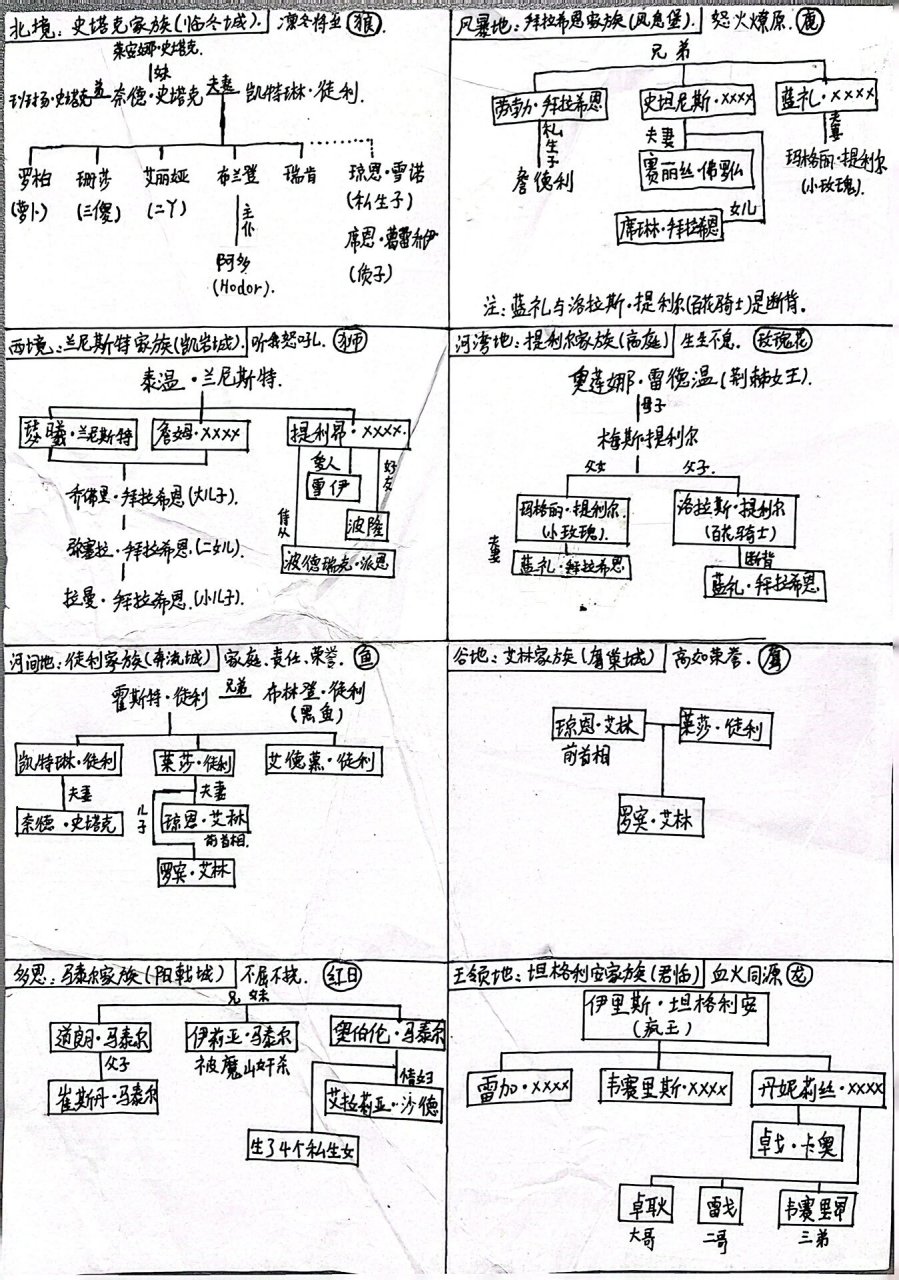 北境：史塔克家族(临冬城). 凛冬将至 狼.
莱安娜·史塔克
妹
班扬·史塔克 弟 奈德·史塔克 夫妻 凯特琳·徒利.
罗柏 珊莎 艾丽娅 布兰登 瑞肯 琼恩·雪诺
(萝卜) (三傻) (二丫) 主仆 (私生子)
阿多 席恩·葛雷乔伊
(Hodor). (质子)
风暴地：拜拉希恩家族(风息堡). 怒火燎原. 鹿
兄弟
劳勃·拜拉希恩 史坦尼斯·xxxx 蓝礼·xxxx
私生子 夫妻 夫妻
詹德利 赛丽丝·佛罗伦 玛格丽·提利尔
(小玫瑰).
女儿
席琳·拜拉希恩
注：蓝礼与洛拉斯·提利尔(百花骑士)是断背。
西境：兰尼斯特家族(凯岩城). 听我怒吼. 狮
泰温·兰尼斯特.
瑟曦·兰尼斯特 詹姆·xxxx 提利昂·xxxx.
乔佛里·拜拉希恩(大儿子).
弥塞拉·拜拉希恩.(二女儿)
拉曼·拜拉希恩.(小儿子).
爱人 好友
雪伊
侍从 波隆
波德瑞克·派恩
河湾地：提利尔家族(高庭) 生生不息. 玫瑰花
奥莲娜·雷德温(荆棘女王).
母子
梅斯·提利尔
父女 父子.
玛格丽·提利尔. 洛拉斯·提利尔
(小玫瑰). (百花骑士)
夫妻 断背
蓝礼·拜拉希恩 蓝礼·拜拉希恩
河间地：徒利家族(奔流城) 家庭、责任、荣誉. 鱼
霍斯特·徒利 兄弟 布林登·徒利
(黑鱼)
凯特琳·徒利 莱莎·徒利 艾德慕·徒利
夫妻 夫妻
奈德·史塔克 儿子 琼恩·艾林
前首相.
罗宾·艾林
谷地：艾林家族(鹰巢城) 高如荣誉. 鹰
琼恩·艾林 莱莎·徒利
前首相
罗宾·艾林
多恩：马泰尔家族(阳戟城) 不屈不挠. 红日
兄妹
道朗·马泰尔 伊莉亚·马泰尔 奥伯伦·马泰尔
父子 被魔山奸杀 情妇
崔斯丹·马泰尔 艾拉莉亚·沙德
生了4个私生女
王领地：坦格利安家族(君临) 血火同源 龙
伊里斯·坦格利安
(疯王)
雷加·xxxx 韦赛里斯·xxxx 丹妮莉丝·xxxx
卓戈·卡奥
卓耿 雷戈 韦赛里昂
大哥 二哥 三弟